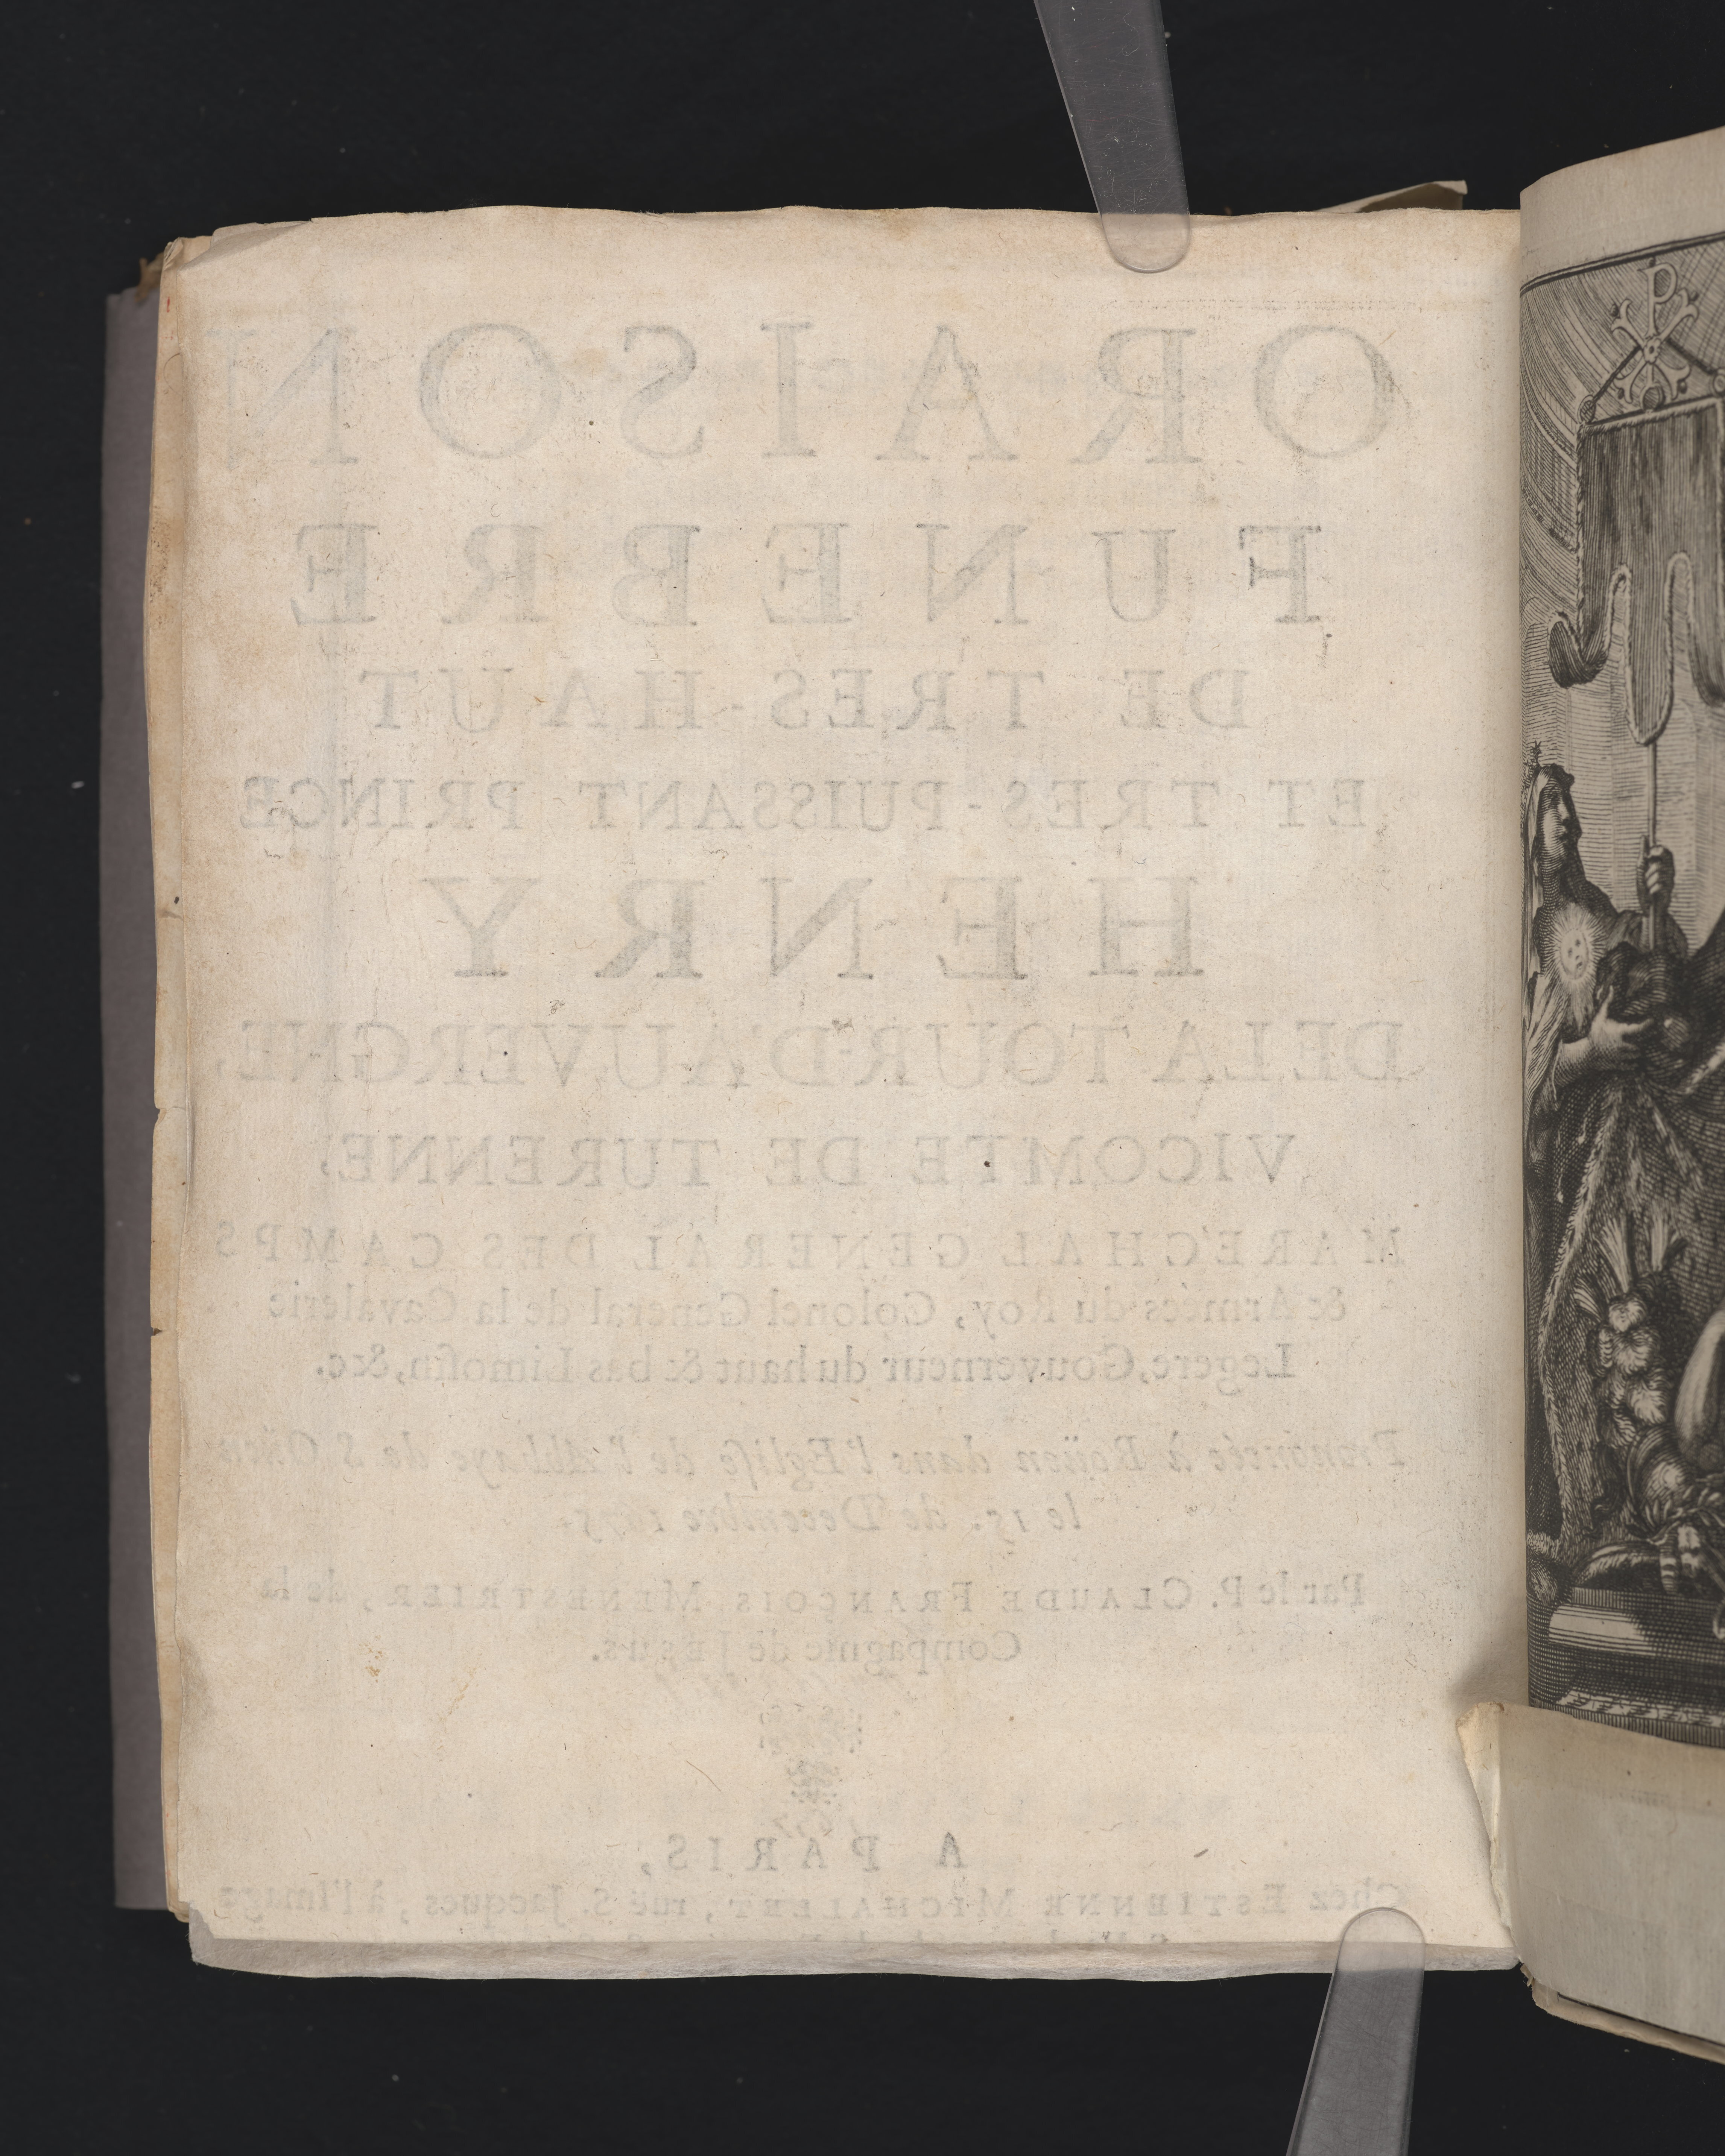 ORAISON
FUNEBRE
DE TRES-HAUT
ET TRES-PUISSANT PRINCE
HENRY
DE LA TOUR-D'AUVERGNE,
VICOMTE DE TURENNE,
MARECHAL GENERAL DES CAMPS
& Armées du Roy, Colonel General de la Cavalerie
Legere, Gouverneur du haut & bas Limosin, &c.
Prononcée à Roüen dans l'Eglise de l'Abbaye de S. Oüen
le 15. de Decembre 1675.
Par le P. CLAUDE FRANÇOIS MENESTRIER, de la
Compagnie de JESUS.
A PARIS,
Chez ESTIENNE MICHALLET, ruë S. Jacques, à l'Image